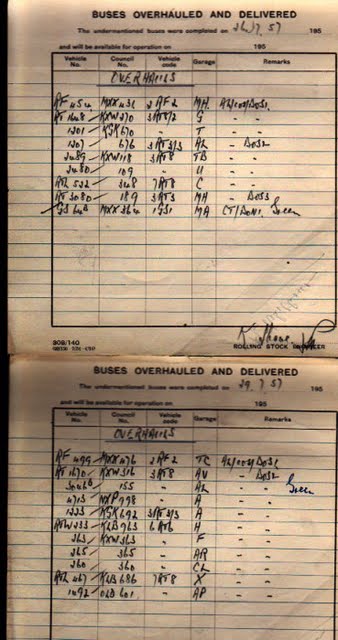 BUSES OVERHAULED AND DELIVERED
The undermentioned buses were completed on 26.7.57 195
and will be available for operation on 195
Vehicle No. Council No. Vehicle code Garage Remarks
OVERHAULS
RF 454 MXX 431 2RF2 MH
RT 1248 KXW 270 3RT8/2 G " "
1201 KSK 670 T " "
1207 676 3RT3/3 AL " DOS2
2489 KXW 118 3RT8 TB " "
2480 109 U " "
RTL 522 348 7RT8 C " "
RT 3080 189 3RT3 MH " DOS3
GS 64B MXX 364 1GS1 MA Green
308/140
ROLLING STOCK ENGINEER
BUSES OVERHAULED AND DELIVERED
The undermentioned buses were completed on 29.7.57 195
and will be available for operation on 195
Vehicle No. Council No. Vehicle code Garage Remarks
OVERHAULS
RF 499 MXX 476 2RF2 TC
RT 1670 KXW 316 3RT8 AV " DOS2
3046B 155 " AL " " Green
4713 MXP 998 " A " "
1223 KSK 692 3RT3/3 A " "
RTW 233 KLB 963 6RT6 H " "
363 KXW 363 " F " "
365 365 " AR " "
360 360 " CL " "
RTL 467 KLB 686 7RT8 X " "
1492 OLD 601 " AP " "